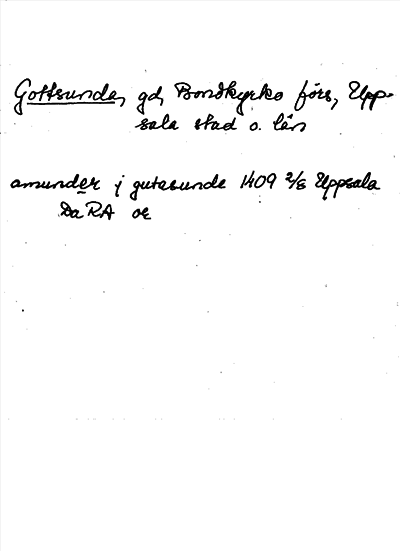 Gottsunda, gd, Bondkyrko förs, Upp-
sala stad o. län
amunder j gutasunde 1409 2/8 Uppsala
DaRA or